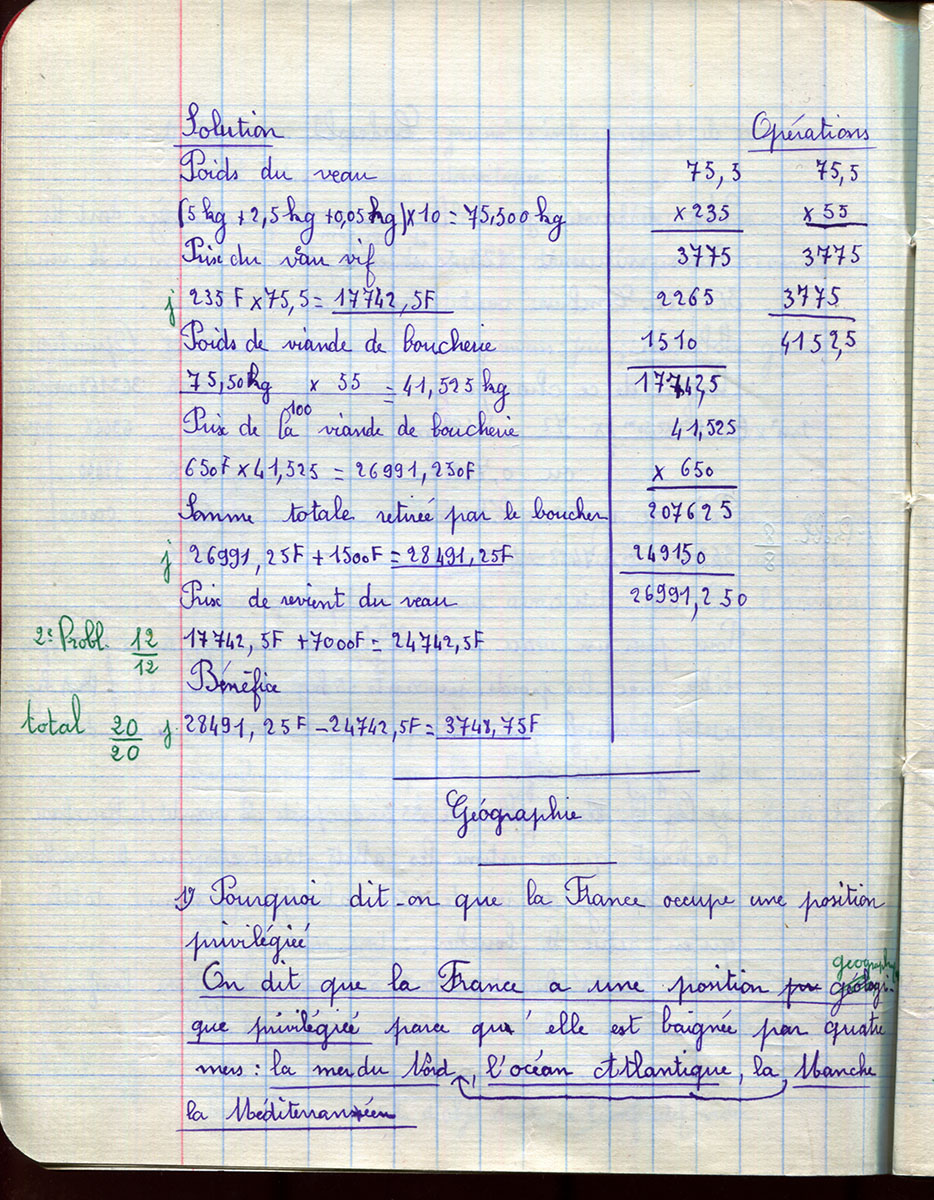 Solution
Poids du veau
(5 kg + 2,5 kg + 0,05 kg) x 10 = 75,500 kg
Prix du veau vif
j 235 F x 75,5 = 17742,5F
Poids de viande de boucherie
75,50kg x 55 = 41,525 kg
100
Prix de la viande de boucherie
650F x 41,525 = 26991,250F
Somme totale retirée par le boucher
j 26991,25F + 1500F = 28491,25F
Prix de revient du veau
2e Probl. 12/12 17742,5F + 7000F = 24742,5F
Bénéfice
total 20/20 j 28491,25F - 24742,5F = 3748,75F
Opérations
75,5
x 235
3775
2265
1510
17742,5
41,525
x 650
207625
249150
26991,250
75,5
x 55
3775
3775
4152,5
Géographie
1) Pourquoi dit-on que la France occupe une position
privilégiée
géographi
On dit que la France a une position géologi-
que privilégiée parce qu' elle est baignée par quatre
mers : la mer du Nord, l'océan Atlantique, la Manche
la Méditerranéen